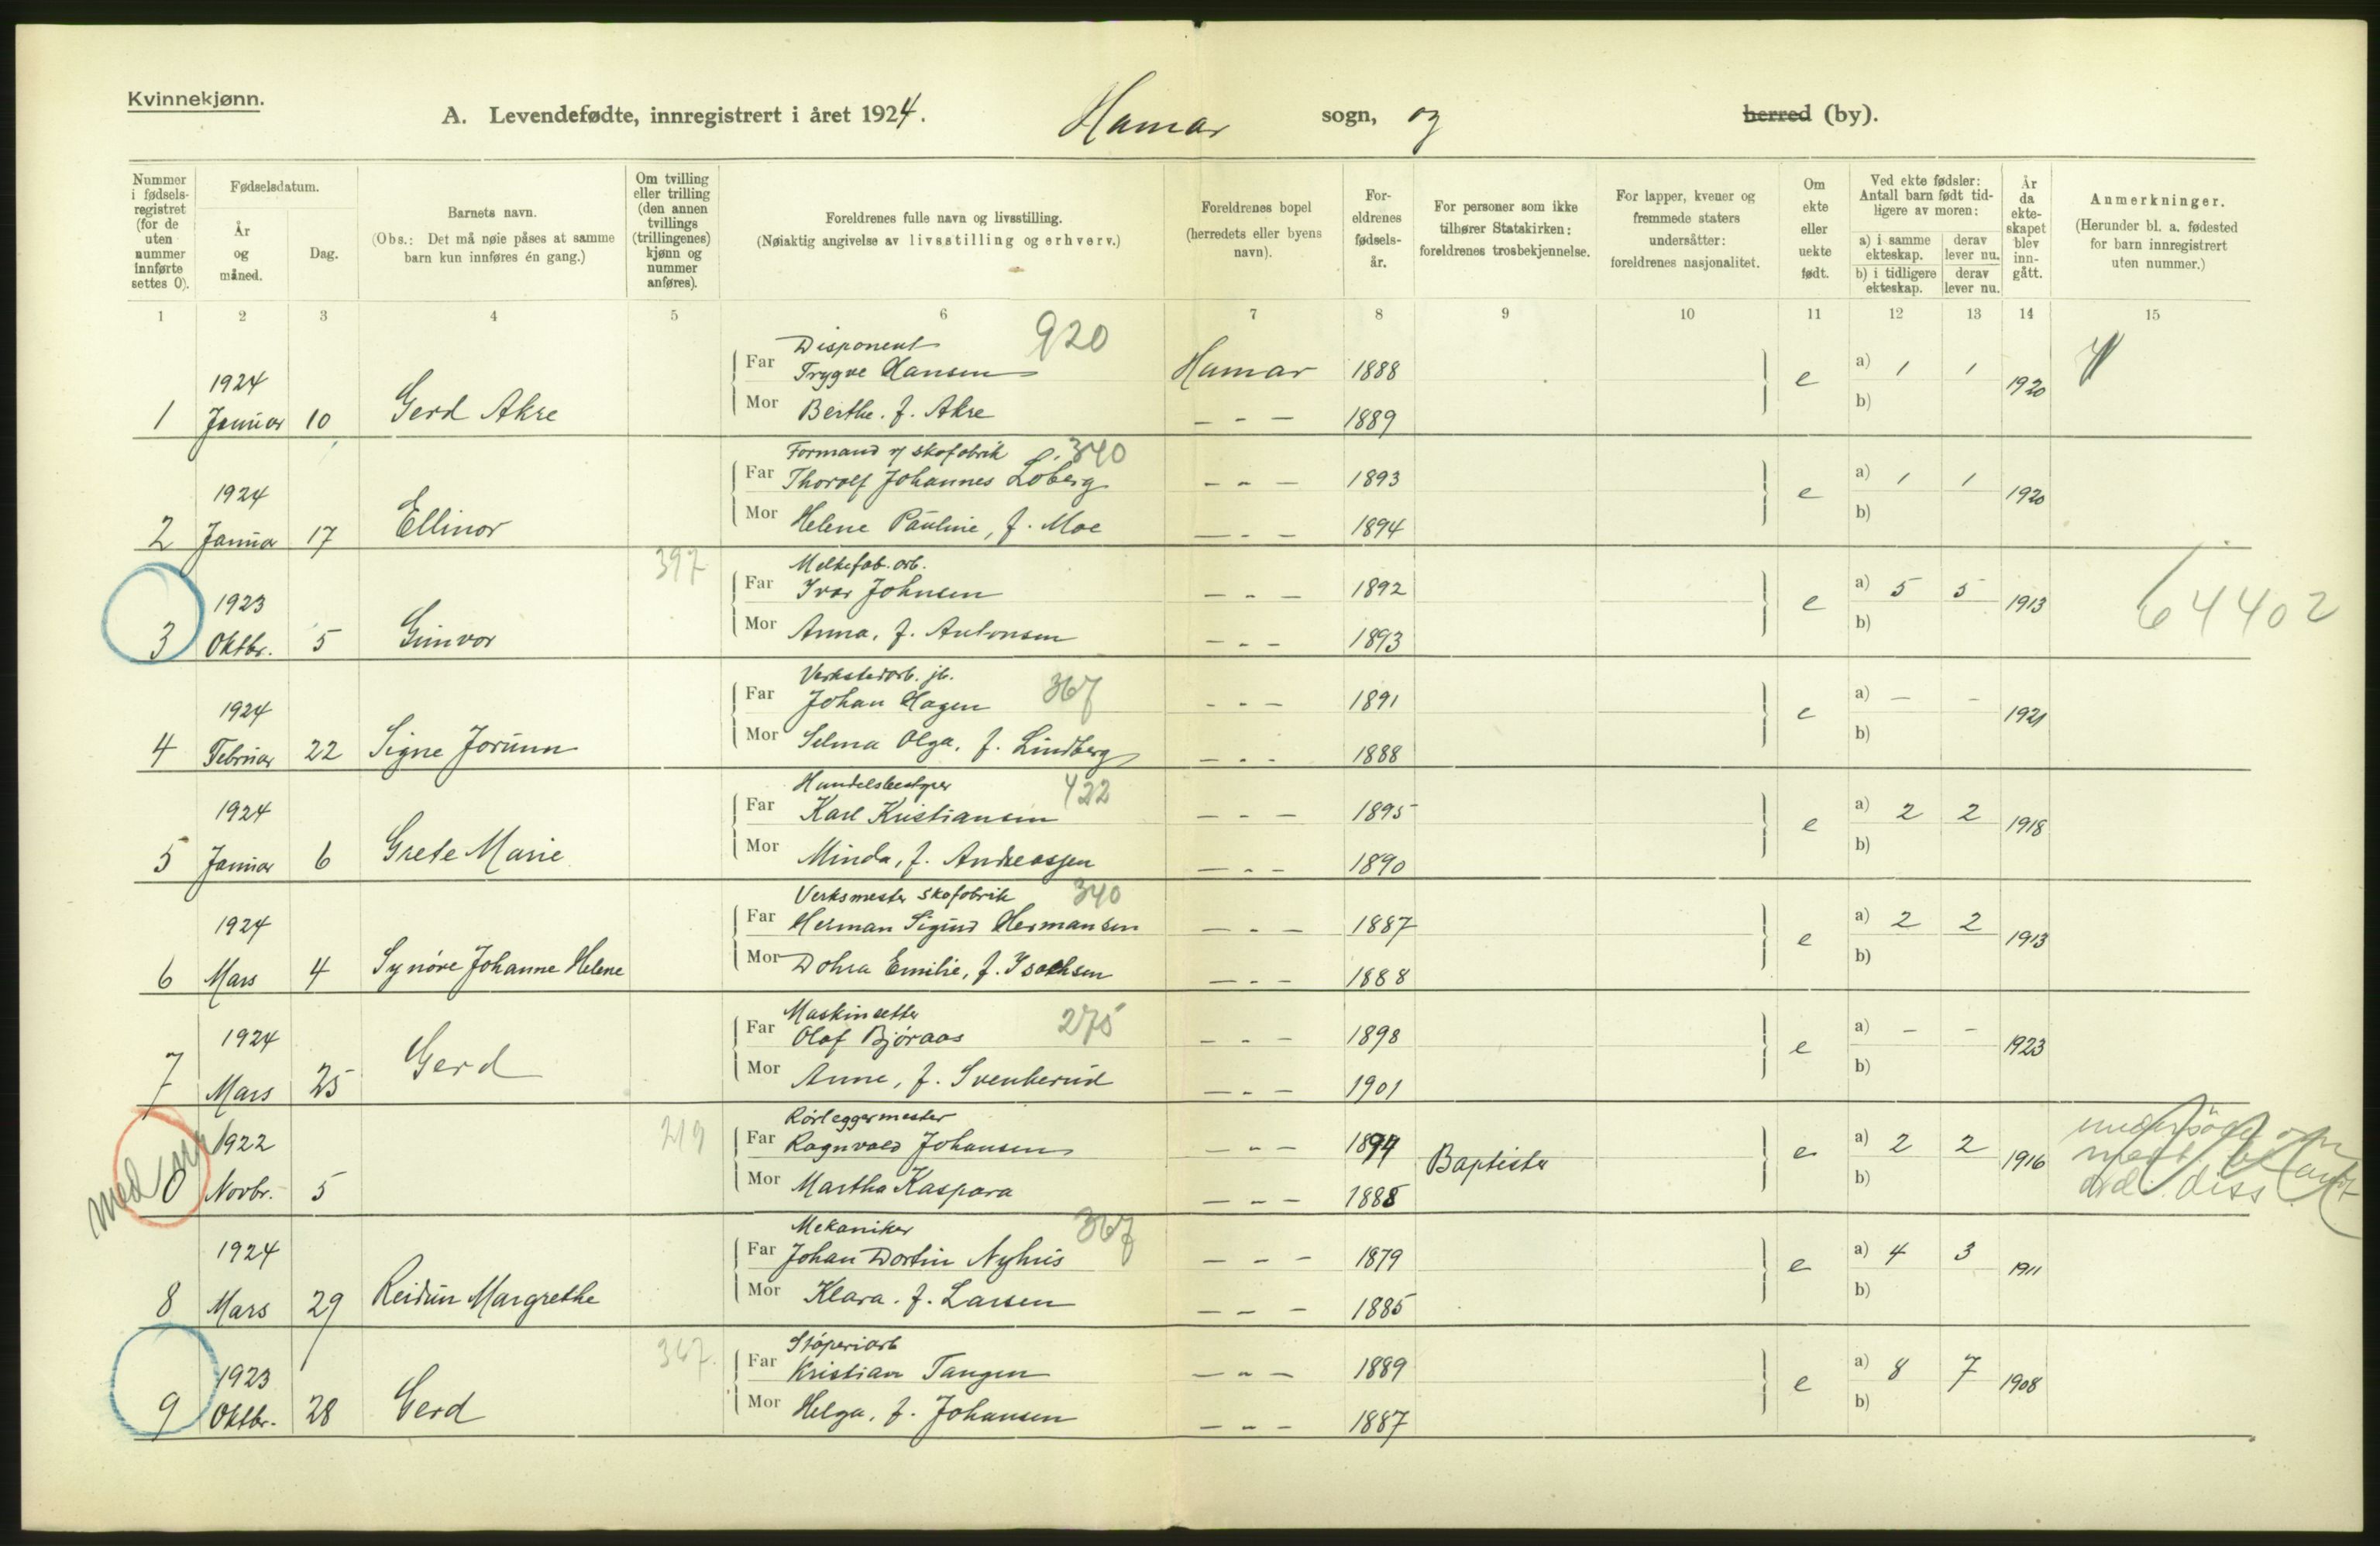 Kvinnekjønn.
A. Levendefødte, innregistrert i året 1924. Hamar sogn, og herred (by).
Nummer i fødselsregistret (for de uten nummer innførte settes 0).
Fødselsdatum.
År og måned.
Dag.
Barnets navn.
(Obs.: Det må nøie påses at samme barn kun innføres én gang.)
Om tvilling eller trilling (den annen tvillings (trillingenes) kjønn og nummer anføres).
Foreldrenes fulle navn og livsstilling.
(Nøiaktig angivelse av livsstilling og erhverv.)
Foreldrenes bopel (herredets eller byens navn).
Foreldrenes fødselsår.
For personer som ikke tilhører Statskirken: foreldrenes trosbekjennelse.
For lapper, kvener og fremmede staters undersåtter: foreldrenes nasjonalitet.
Om ekte eller uekte født.
Ved ekte fødsler: Antall barn født tidligere av moren:
a) i samme ekteskap. derav lever nu.
b) i tidligere ekteskap. derav lever nu.
År da ekteskapet blev inngått.
Anmerkninger.
(Herunder bl. a. fødested for barn innregistrert uten nummer.)
1 2 3 4 5 6 7 8 9 10 11 12 13 14 15
Disponent 920
1924 Far Trygve Hansen Hamar 1888 e a) 1 1 1920
1 Januar 10 Gerd Akre Mor Berthe. f. Akre — - — 1889 b)
Formand v/ skofabrik 340
1924 Far Thorolf Johannes Loberg - - — 1893 e a) 1 1 1920
2 Januar 17 Ellinor Mor Helene Pauline, f. Moe — - — 1894 b)
397 Melkefab. arb.
1923 Far Ivar Johnsen — - — 1892 e a) 5 5 1913 64402
3 Oktbr. 5 Gunvor Mor Anna, f. Antonsen — - — 1893 b)
Verkstedarb. jb. 367
1924 Far Johan Hagen - - — 1891 e a) — - 1921
4 Februar 22 Signe Jorunn Mor Selma Olga, f. Lindberg — - - 1888 b)
Handelsbestyrer 422
1924 Far Karl Kristiansen — - — 1895 e a) 2 2 1918
5 Januar 6 Grete Marie Mor Minda, f. Andreassen — - — 1890 b)
Verksmester skofabrik 340
1924 Far Herman Sigurd Hermansen — - — 1887 e a) 2 2 1913
6 Mars 4 Synøve Johanne Helene Mor Dohra Emilie, f. Isachsen — - — 1888 b)
Maskinsetter 275
1924 Far Olaf Bjøraas — - — 1898 e a) — - 1923
7 Mars 25 Gerd Mor Anne, f. Svenkerud — - — 1901 b)
219 Rørleggermester
1922 Far Ragnvald Johansen — - — 1894 Baptister e a) 2 2 1916
med 0 Novbr. 5 Mor Martha Kaspara — - — 1888 b) diss
Mekaniker 367
1924 Far Johan Dortin Nyhus — - — 1879 e a) 4 3 1911
8 Mars 29 Reidun Margrethe Mor Klara. f. Larsen — - — 1885 b)
367. Støperiarb
1923 Far Kristian Tangen — - — 1889 e a) 8 7 1908
9 Oktbr. 28 Gerd Mor Helga, f. Johansen — - — 1887 b)